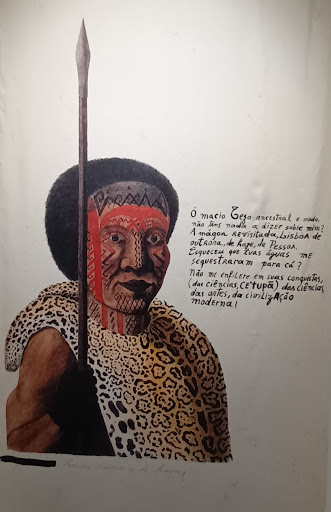 Ó macio Tejo ancestral e mudo,
não tens nada a dizer sobre mim?
A mágoa Revisitada, Lisboa de
outrora, de hoje, de Pessoa.
Esqueceu que tuas águas me
sequestraram para cá?
Não me enfileire em suas conquistas,
(das ciências, CETUPÃ) das ciências,
das artes, da civilizAção
moderna!